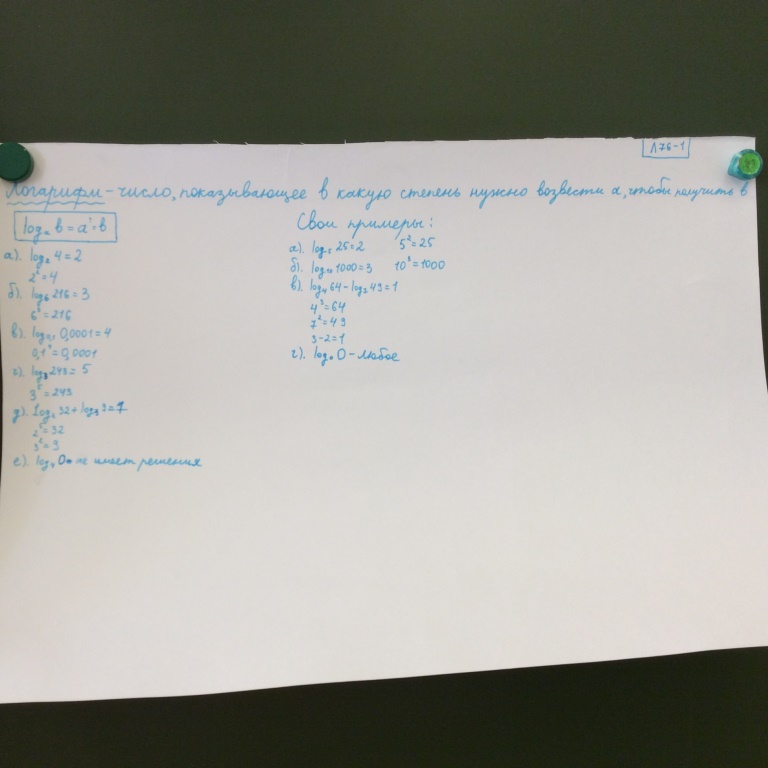 Л76-1
Логарифм - число, показывающее в какую степень нужно возвести a, чтобы получить в
logₐ b = aˣ = b
а). log₂ 4 = 2
2² = 4
б). log₆ 216 = 3
6³ = 216
в). log₀,₁ 0,0001 = 4
0,1⁴ = 0,0001
г). log₃ 243 = 5
3⁵ = 243
д). log₂ 32 + log₃ 9 = 7
2⁵ = 32
3² = 9
е). log₄ 0 - не имеет решения
Свои примеры:
а). log₅ 25 = 2 5² = 25
б). log₁₀ 1000 = 3 10³ = 1000
в). log₄ 64 - log₇ 49 = 1
4³ = 64
7² = 49
3 - 2 = 1
г). log₀ 0 - любое